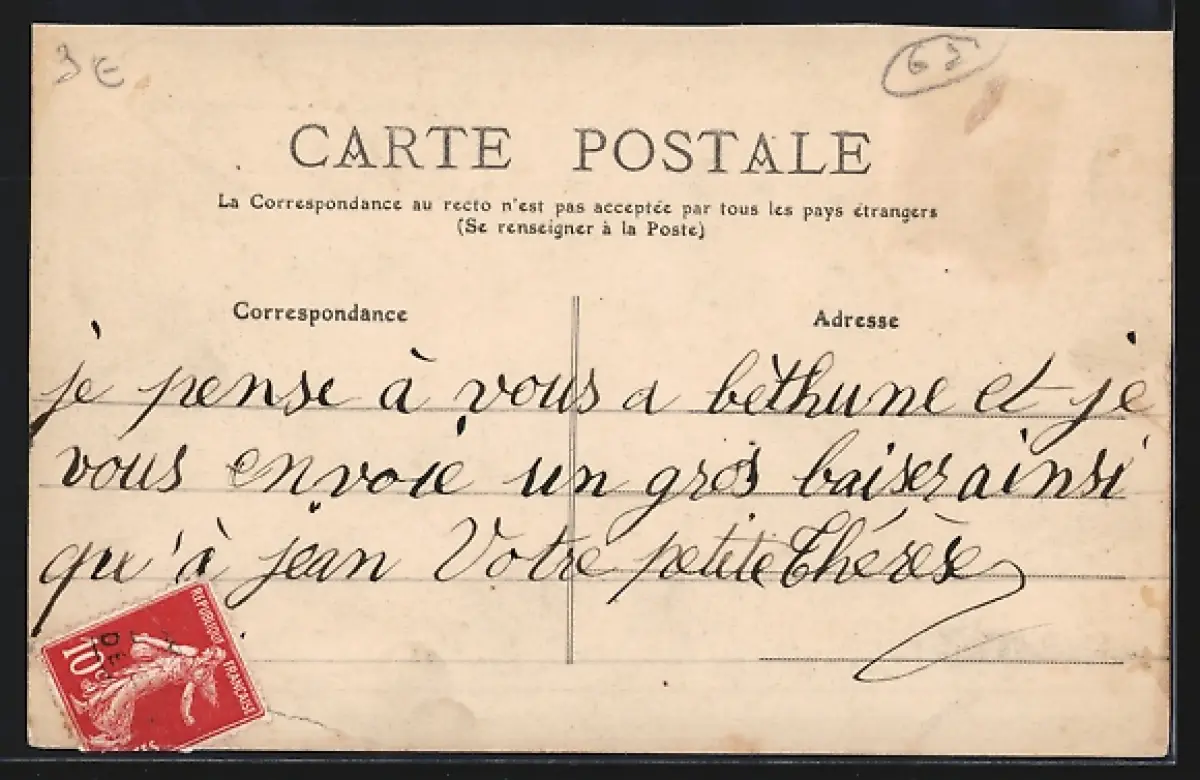 3 €
62
CARTE POSTALE
La Correspondance au recto n'est pas acceptée par tous les pays étrangers
(Se renseigner à la Poste)
Correspondance
Adresse
je pense à vous a bèthune et je
vous envoie un gros baiser ainsi
qu'à jean Votre petite Thérèse
REPUBLIQUE FRANÇAISE
10c